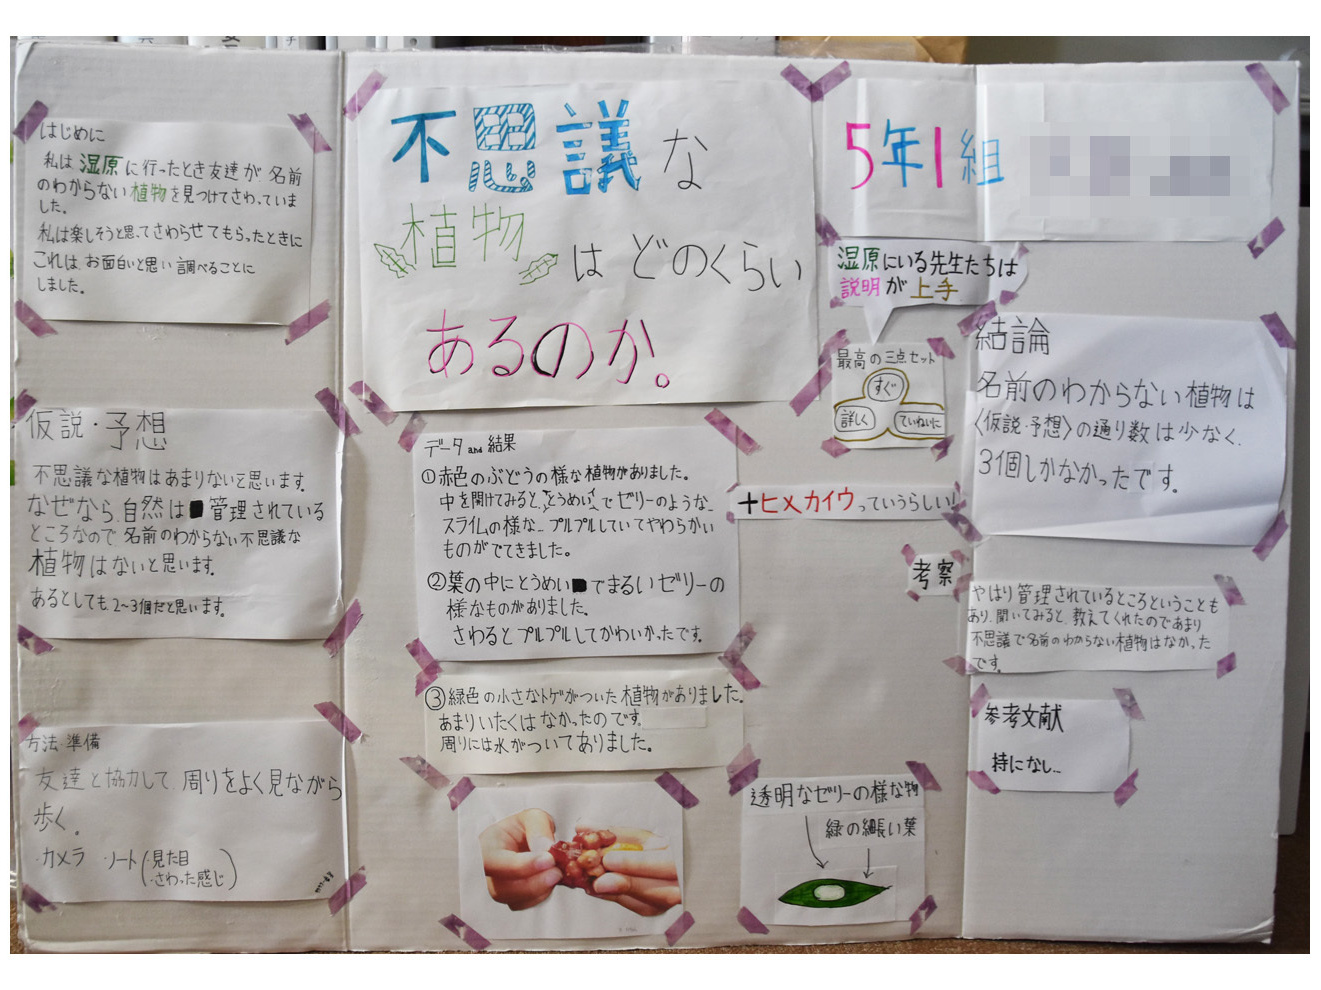 はじめに
私は湿原に行ったとき友達が名前
のわからない植物を見つけてさわっていま
した。
私は楽しそうと思ってさわらせてもらったときに
これは、お面白いと思い調べることに
しました。
仮説・予想
不思議な植物はあまりないと思います。
なぜなら、自然は管理されている
ところなので名前のわからない不思議な
植物はないと思います。
あるとしても、2〜3個だと思います。
方法・準備
友達と協力して、周りをよく見ながら
歩く。
・カメラ ・ノート(・見た目
・さわった感じ)
不思議な
植物はどのくらい
あるのか。
データand結果
①赤色のぶどうの様な植物がありました。
中を開けてみると、とうめいでゼリーのような
スライムの様な プルプルしていてやわらかい
ものがでてきました。
②葉の中にとうめいでまるいゼリーの
様なものがありました。
さわるとプルプルしてかわいかったです。
③緑色の小さなトゲがついた植物がありました。
あまりいたくはなかったのです。
周りには水がついてありました。
透明なゼリーの様な物
緑の細長い葉
5年1組
湿原にいる先生たちは
説明が上手
最高の三点セット
すぐ
詳しく
ていねいに
+ヒメカイウっていうらしい!
結論
名前のわからない植物は
〈仮説・予想〉の通り数は少なく、
3個しかなかったです。
考察
やはり管理されているところということも
あり、聞いてみると、教えてくれたのであまり
不思議で名前のわからない植物はなかった
です。
参考文献
持になし